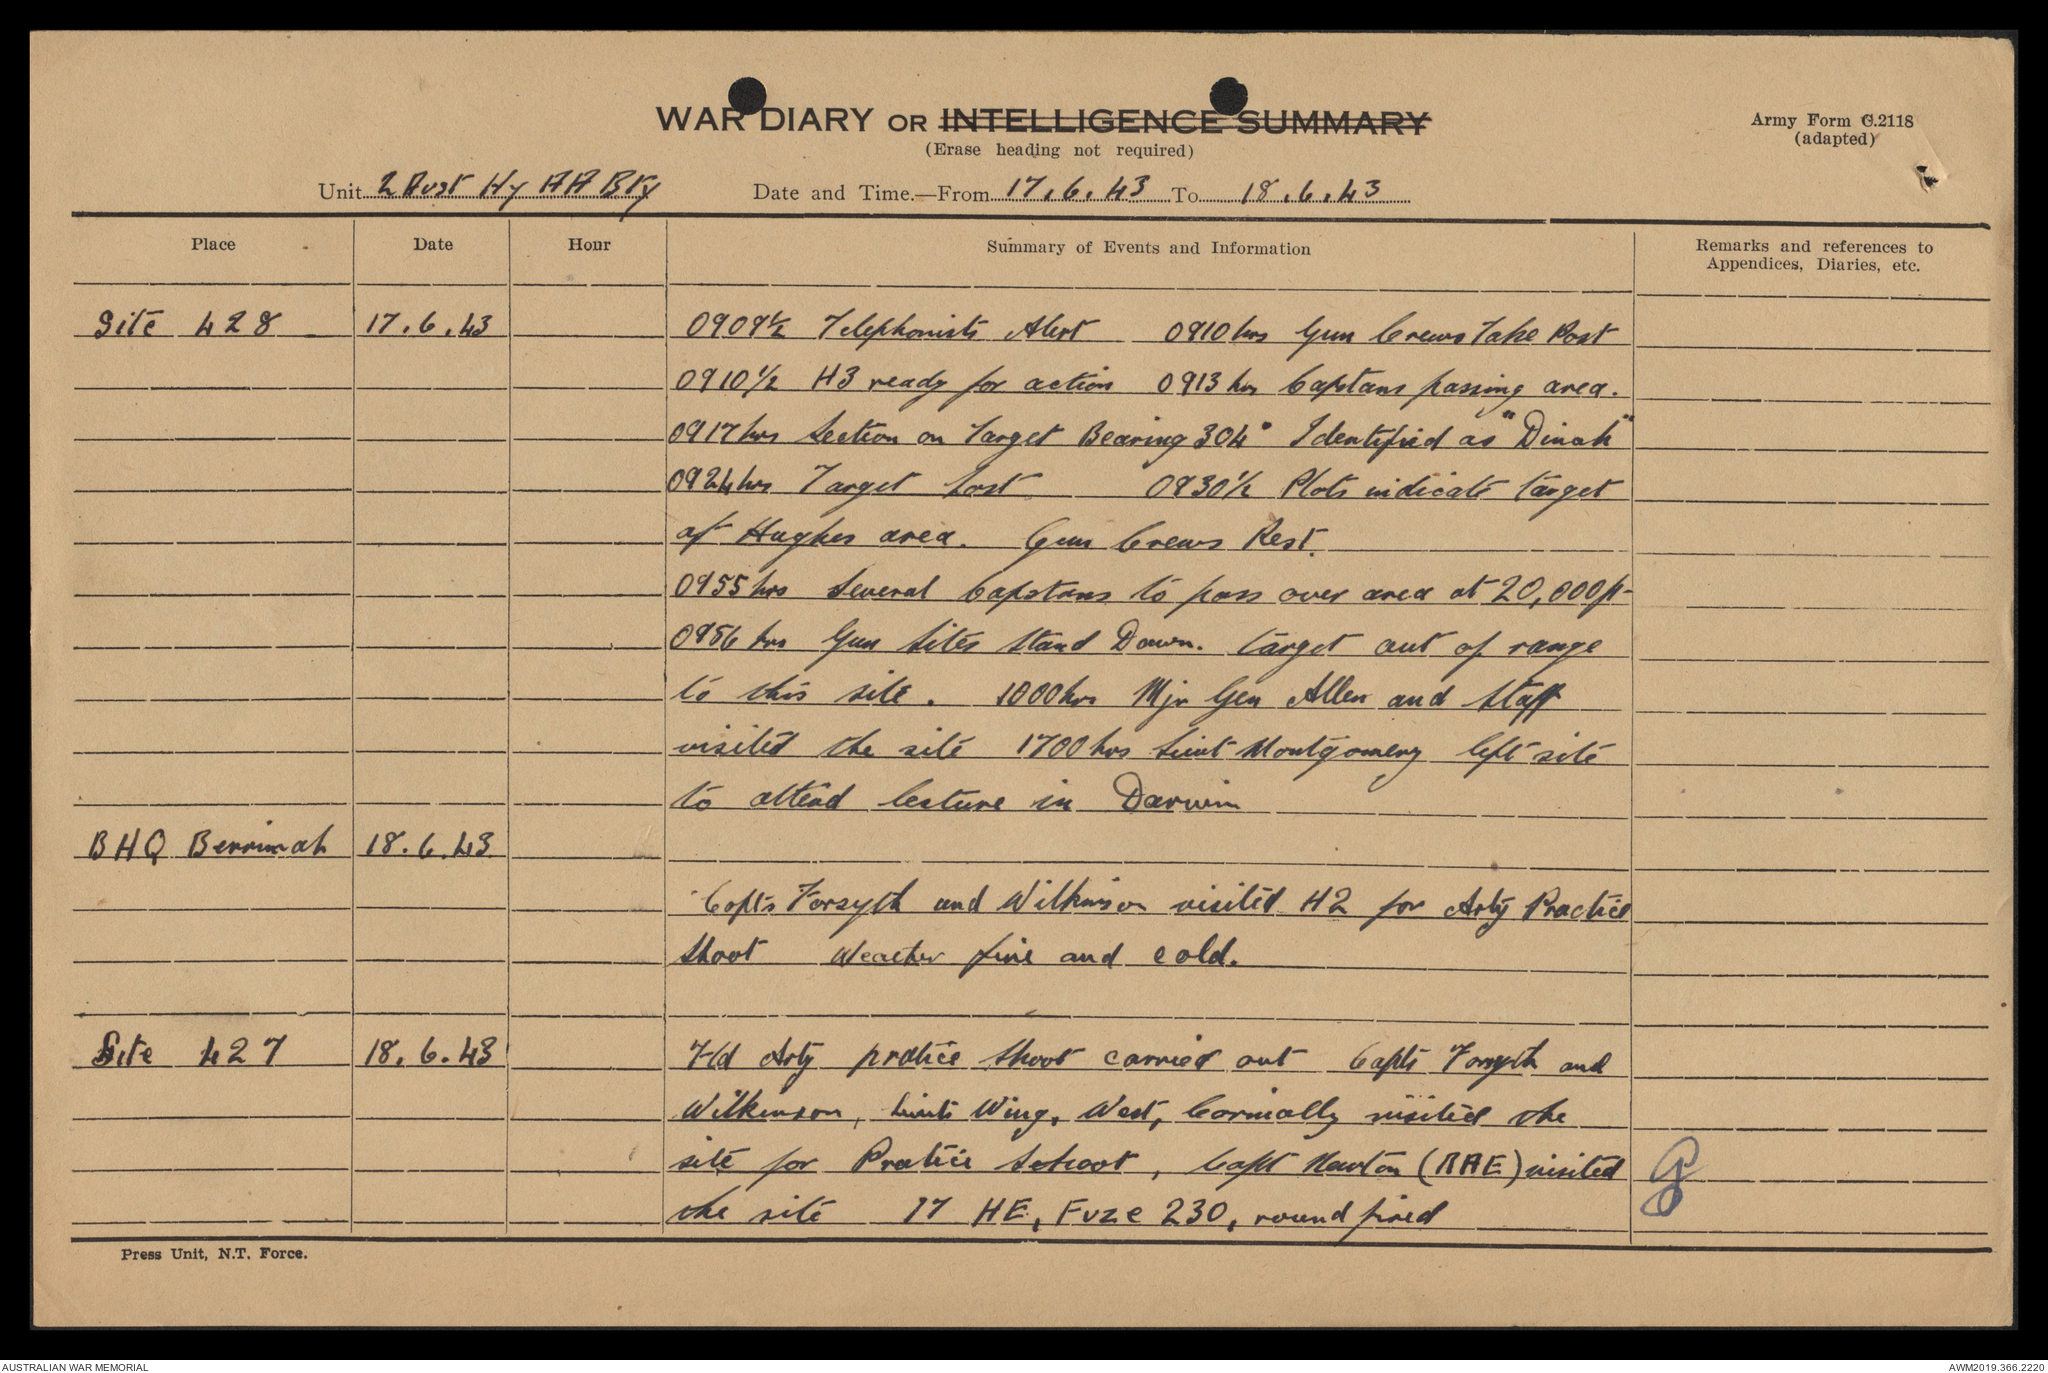 WAR DIARY OR INTELLIGENCE SUMMARY
(Erase heading not required)
Army Form C.2118
(adapted)
Unit 2 Aust Hy AA Bty Date and Time.—From 17.6.43 To 18.6.43
Place Date Hour Summary of Events and Information Remarks and references to
Appendices, Diaries, etc.
Site 428 17.6.43 0909½ Telephonists Alert 0910 hrs Gun Crews Take Post
0910½ H3 ready for action 0913 hrs Capstans passing area.
0917 hrs Section on Target Bearing 304° Identified as "Dinah"
0924 hrs Target Lost 0930½ Plots indicate target
at Hughes area. Gun Crews Rest.
0955 hrs Several Capstans to pass over area at 20,000 ft
0956 hrs Gun Sites Stand Down. target out of range
to this site. 1000 hrs Mjr Gen Allen and Staff
visited the site 1700 hrs Lieut Montgomery left site
to attend lecture in Darwin
BHQ Berrimah 18.6.43
Capts Forsyth and Wilkinson visited H2 for Arty Practice
Shoot Weather fine and cold.
Site 427 18.6.43 Fld Arty pratice Shoot carried out Capts Forsyth and
Wilkinson, Lieuts Wing, West, Cormally visited the
site for Pratice Schoot, Capt Newton (RAE) visited
the site 17 HE, Fuze 230, round fired
Press Unit, N.T. Force.
AUSTRALIAN WAR MEMORIAL
AWM2019.366.2220